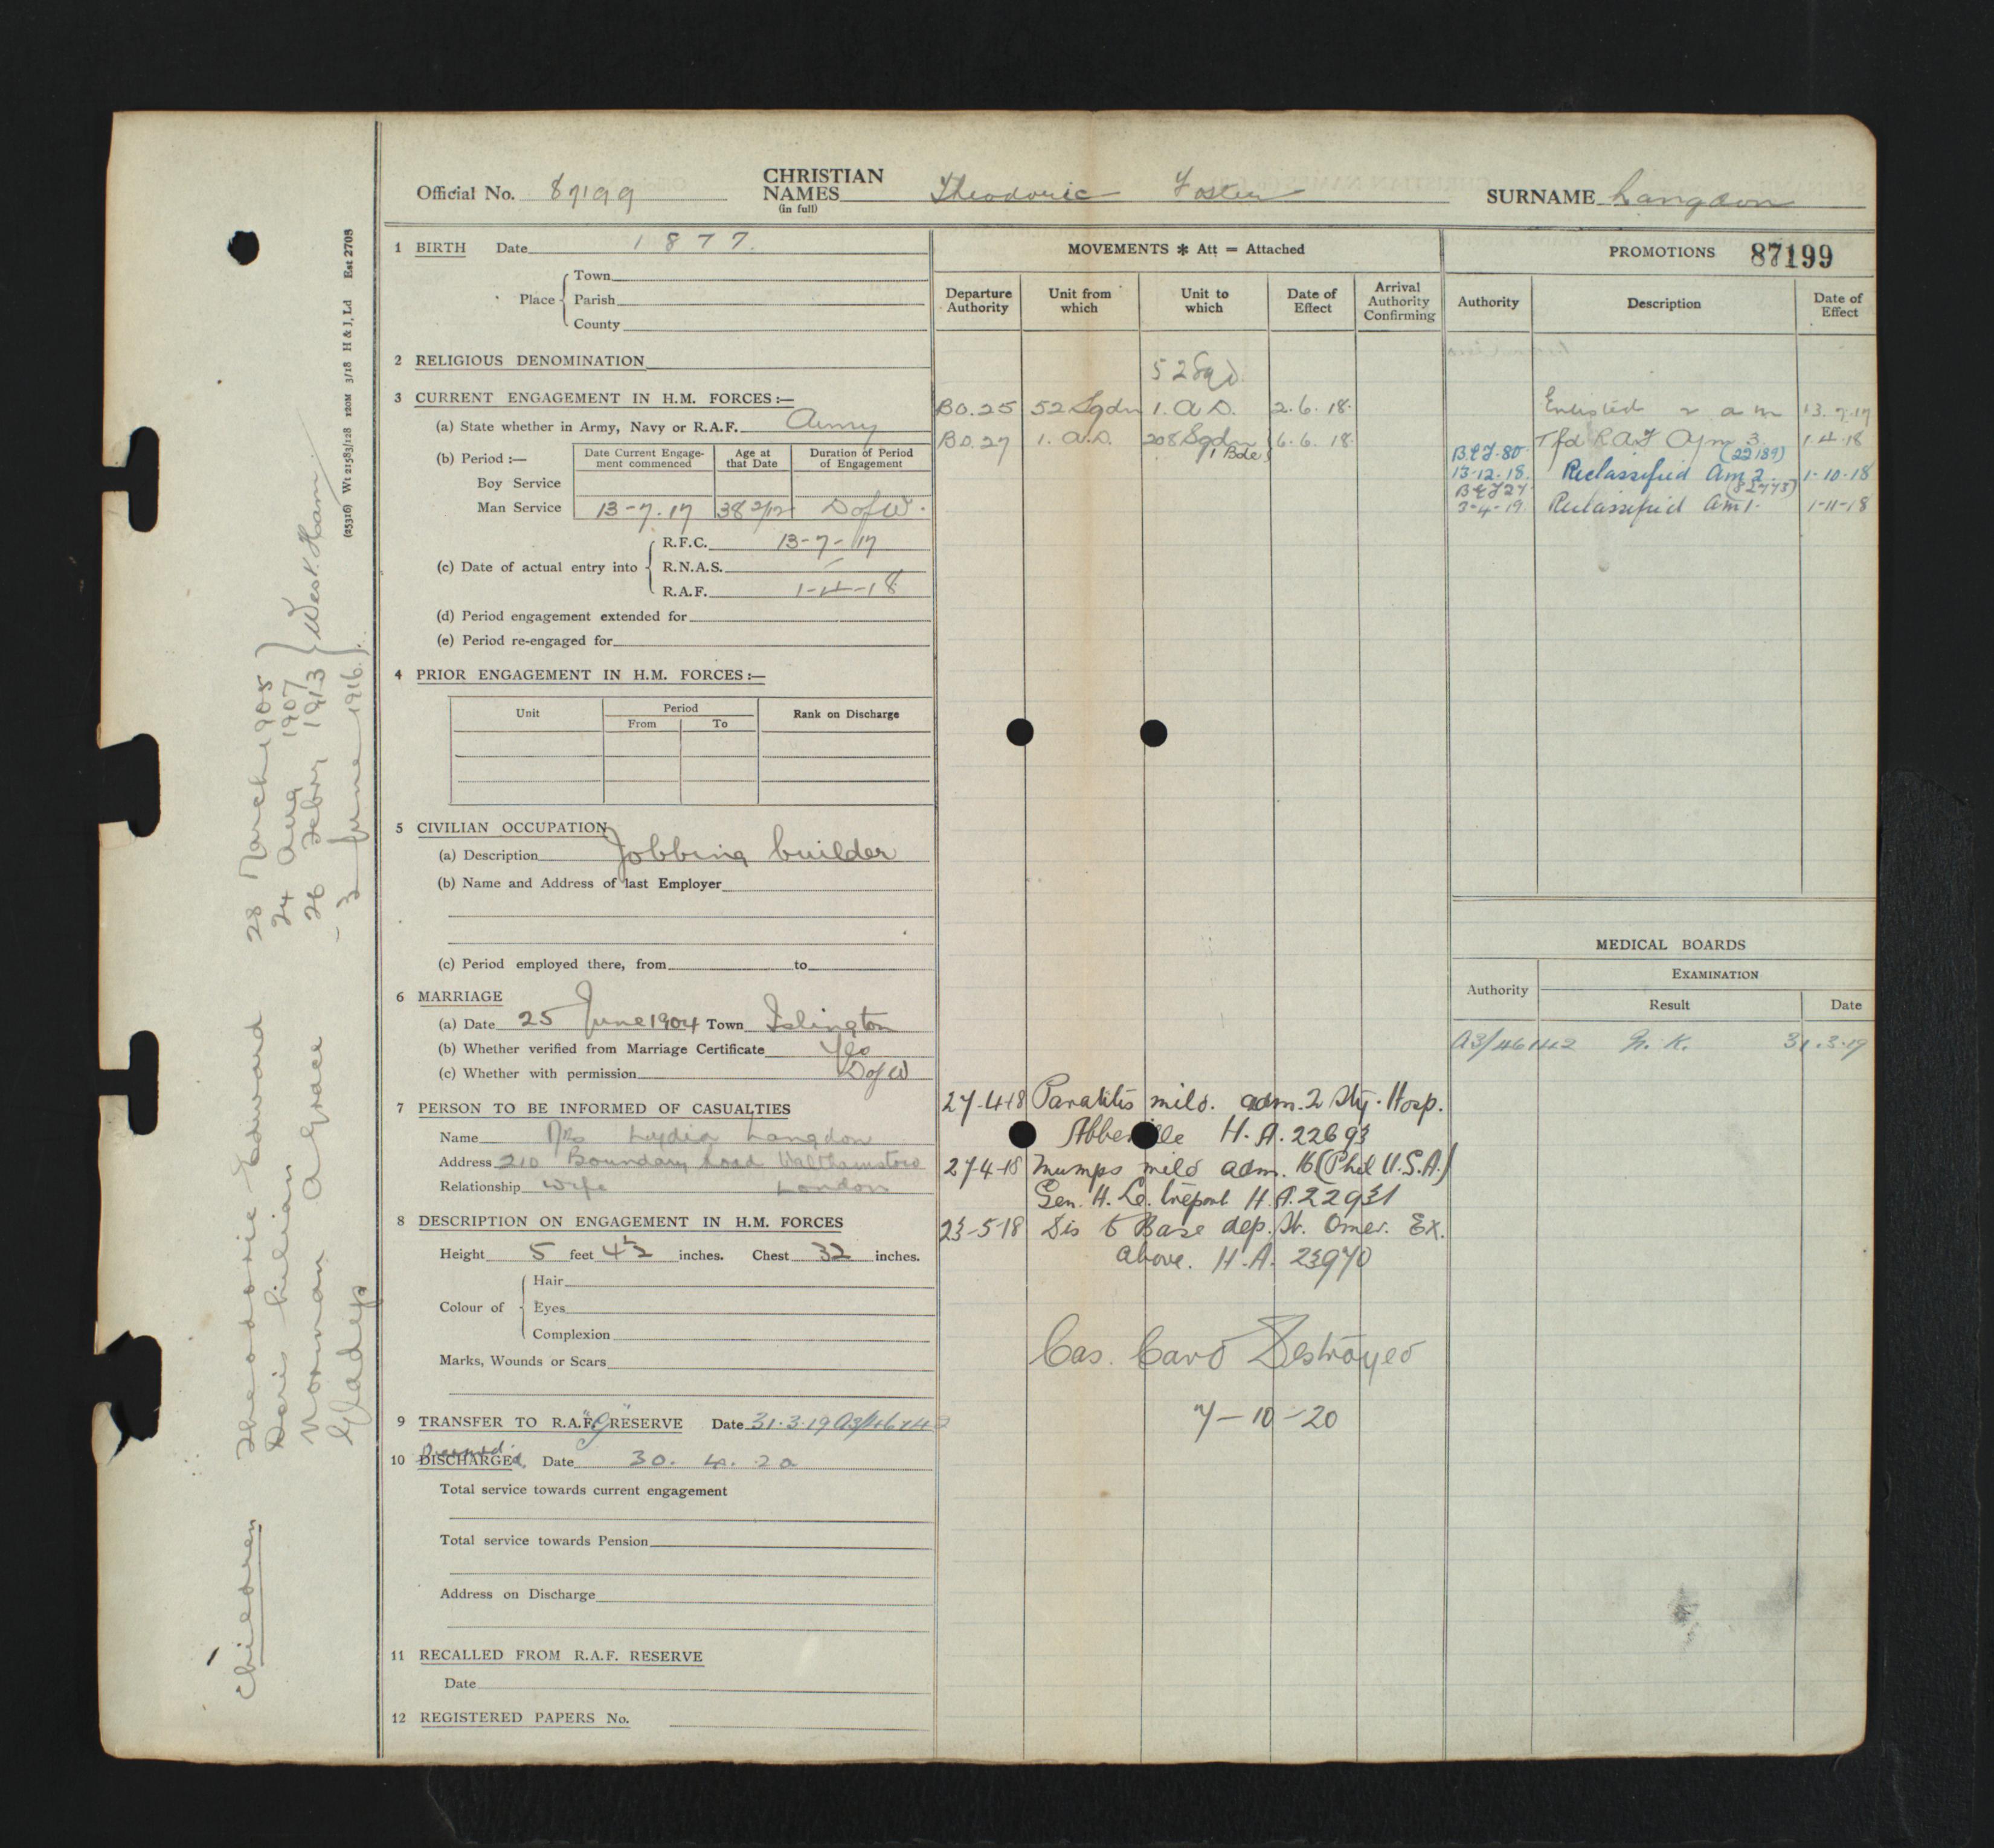 Official No. 87199 CHRISTIAN NAMES (in full) Theodoric Foster SURNAME Langdon
1 BIRTH Date 1877.
Place Town
Parish
County
2 RELIGIOUS DENOMINATION
3 CURRENT ENGAGEMENT IN H.M. FORCES :—
(a) State whether in Army, Navy or R.A.F. Army
(b) Period :— Date Current Engagement commenced Age at that Date Duration of Period of Engagement
Boy Service
Man Service 13-7-17 38 2/12 D of W.
(c) Date of actual entry into R.F.C. 13-7-17
R.N.A.S.
R.A.F. 1-4-18
(d) Period engagement extended for
(e) Period re-engaged for
4 PRIOR ENGAGEMENT IN H.M. FORCES :—
Unit Period Rank on Discharge
From To
5 CIVILIAN OCCUPATION
(a) Description Jobbing builder
(b) Name and Address of last Employer
(c) Period employed there, from to
6 MARRIAGE
(a) Date 25 June 1904 Town Islington
(b) Whether verified from Marriage Certificate Yes
(c) Whether with permission D of W
7 PERSON TO BE INFORMED OF CASUALTIES
Name Mrs Lydia Langdon
Address 210 Boundary Road Walthamstow
Relationship Wife London
8 DESCRIPTION ON ENGAGEMENT IN H.M. FORCES
Height 5 feet 4½ inches. Chest 32 inches.
Colour of Hair
Eyes
Complexion
Marks, Wounds or Scars
9 TRANSFER TO R.A.F. "G" RESERVE Date 31.3.19 A3/46442
10 DISCHARGEd. Date 30.4.20
Total service towards current engagement
Total service towards Pension
Address on Discharge
11 RECALLED FROM R.A.F. RESERVE
Date
12 REGISTERED PAPERS No.
MOVEMENTS * Att = Attached
Departure Authority Unit from which Unit to which Date of Effect Arrival Authority Confirming
52 Sqd
BO.25 52 Sqdn 1. A.D. 2.6.18.
BO.27 1. A.D. 208 Sqdn 6.6.18.
1 Bde
27-4-18 Parotitis mild. adm. 2 Sty. Hosp.
Abbeville H.A. 22693
27-4-18 Mumps mild adm. 16 (Phil U.S.A.)
Gen. H. Le Treport H.A. 22931
23-5-18 Dis to Base dep. St. Omer. Ex.
above. H.A. 23970
Cas. Card Destroyed
7-10-20
PROMOTIONS 87199
Authority Description Date of Effect
Enlisted 2 a m 13.7.17
Tfd R A F Ajm 3. 1.4.18
B.E.F. 80 (22189)
13-12-18. Reclassified Am 2. 1-10-18
B E F 27 (82773)
3-4-19 Reclassified Am 1. 1-11-18
MEDICAL BOARDS
Authority EXAMINATION
Result Date
A3/46442 G. K. 31.3.19
(25316) Wt 21583/128 120M 3/18 H & J, Ld Est 2708
Children
Theodoric Edward 28 March 1905
Doris Lilian 24 Aug 1907
Norman A Grace 26 Febry 1913
Gladys 3 June 1916
West Ham